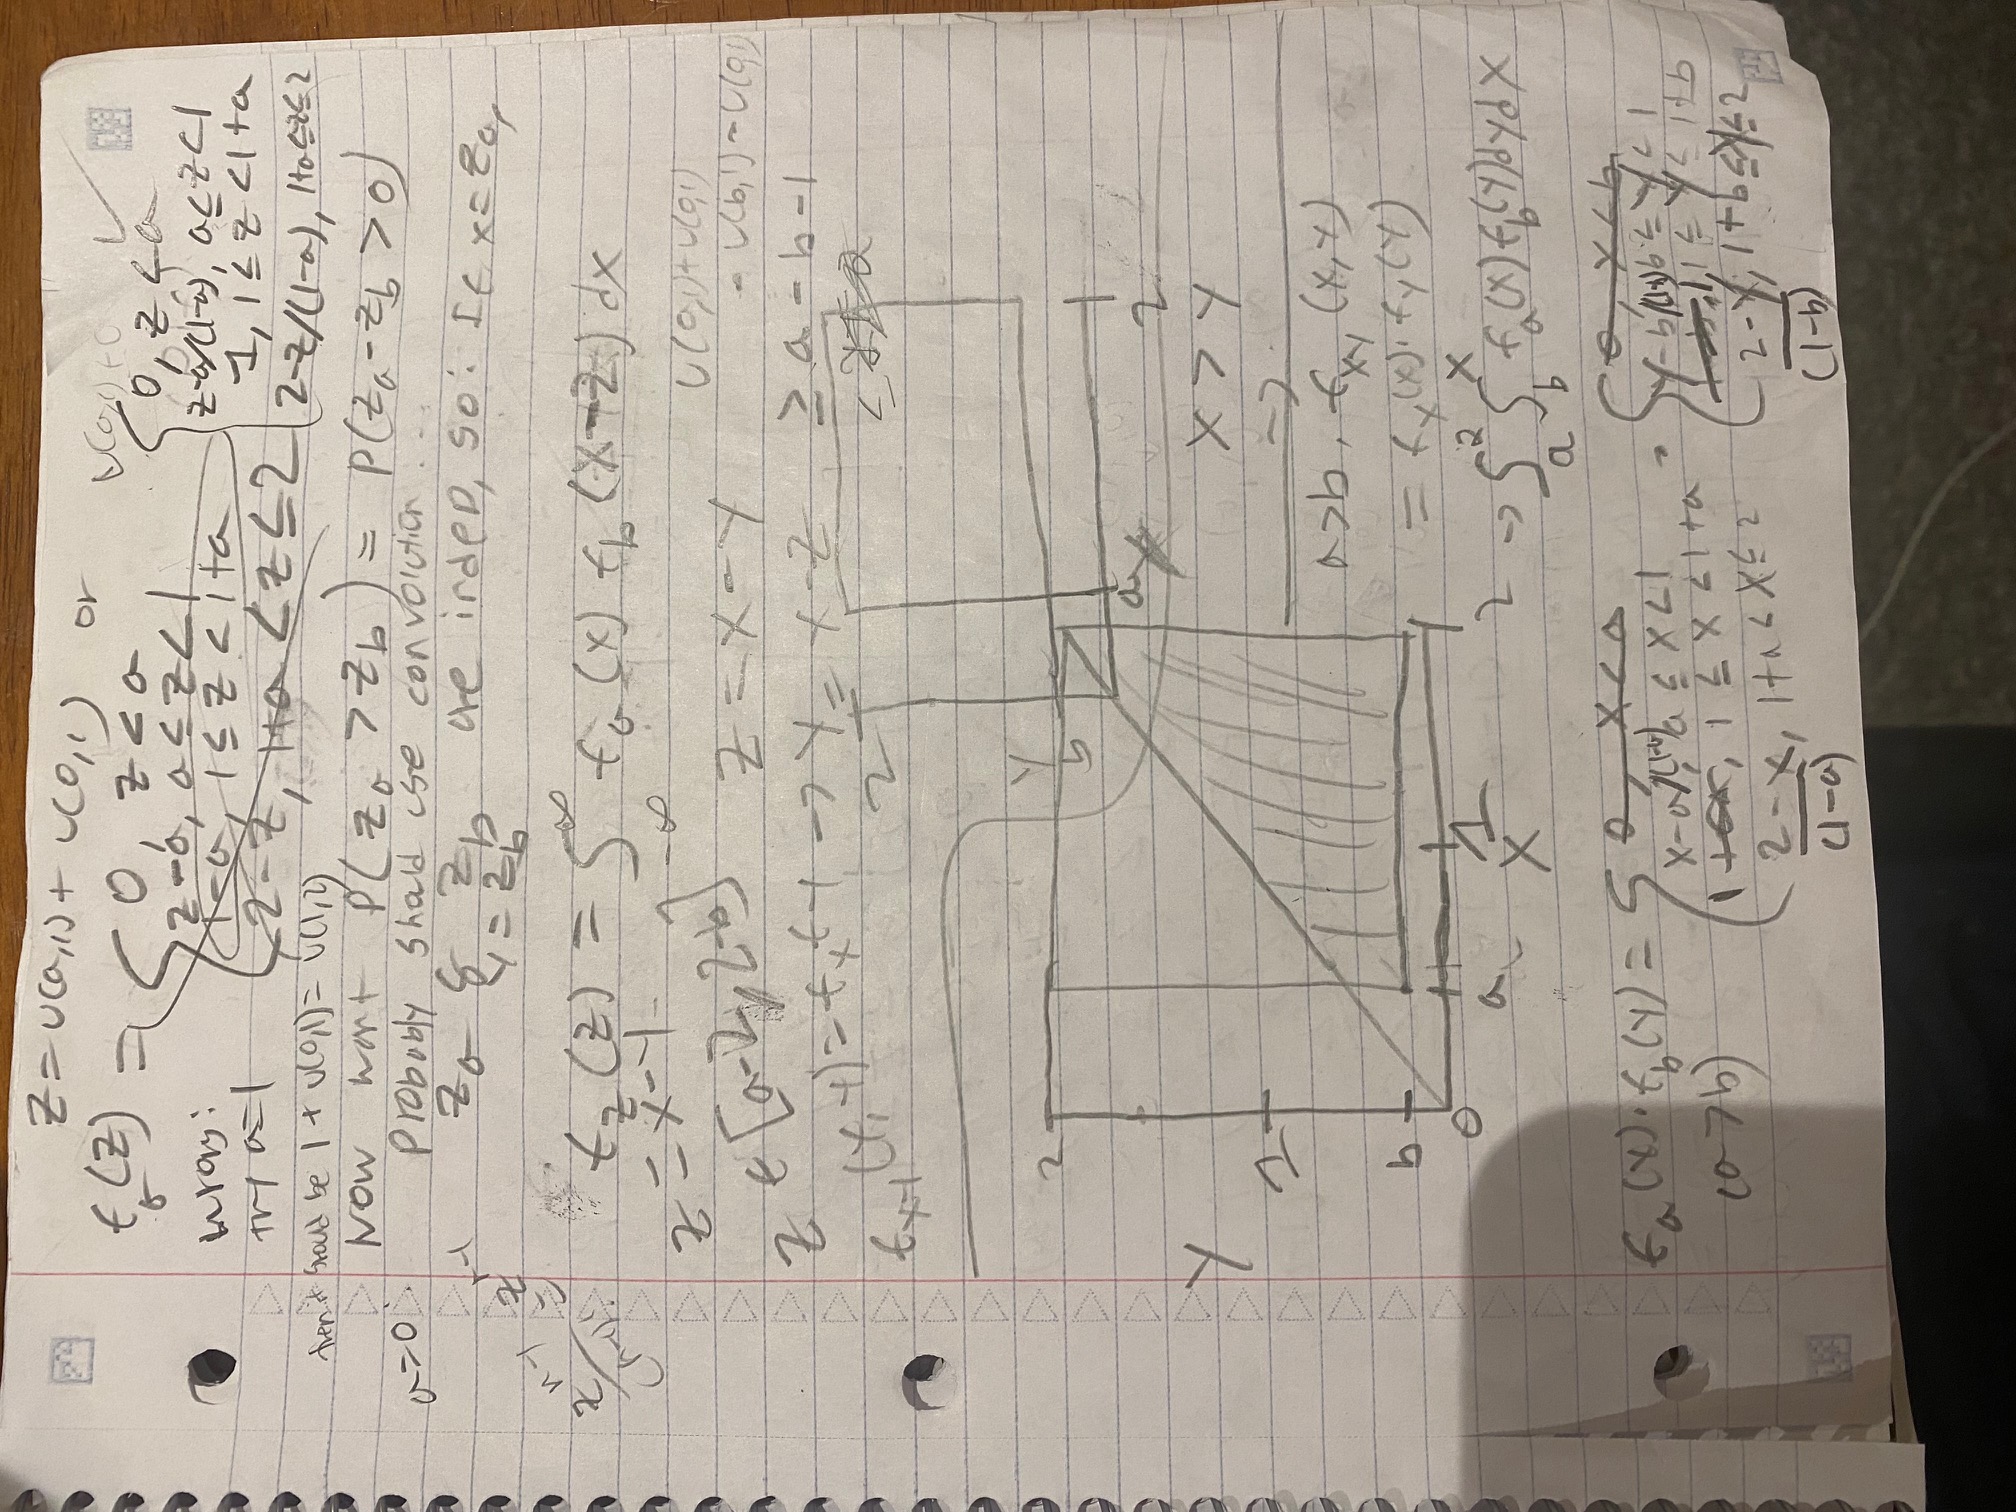 Z = U(a,1) + U(0,1) or
U(0,1)+0
f_a(z) = { 0, z < a
z-a, a ≤ z < 1
1-a, 1 ≤ z < 1+a
2-z, 1+a < z ≤ 2
{ 0, z < a
z-a/(1-a), a ≤ z < 1
1, 1 ≤ z < 1+a
2-z/(1-a), 1+a ≤ z ≤ 2
wrong:
try a=1
then it should be 1 + U(0,1) = U(1,2)
Now want P(z_a > z_b) = P(z_a - z_b > 0)
a=0:
Probably should use convolution ...
z_a & z_b are indep, so: If x = z_a,
y = z_b
z^{n-1}
f_z(z) = ∫_{-∞}^{∞} f_a(x) f_b(x-z) dx
z = x-y
z ∈ [a-2, 2-b] z = x-y
U(a,1)+U(0,1)
- U(b,1) - U(0,1)
f_{xy}(x,y) = f_x f_y → y = x-z ≥ a-b-1
2
y
b
a x
2
2
Y
1
b
0
a
1
X
2
x > y
→
a>b, f_{xy}(x,y)
= f_x(x)·f_y(y)
→ ∫_a^2 ∫_b^x f_a(x) f_b(y) dy dx
f_a(x)·f_b(y) = { 0, x < a
x-a/(1-a), a ≤ x < 1
1, 1 ≤ x < 1+a
2-x/(1-a), 1+a < x ≤ 2
(a>b)
· { 0, x < b
y-b/(1-b), b ≤ y < 1
1, 1 ≤ y ≤ 1+b
2-y/(1-b), 1+b ≤ y ≤ 2